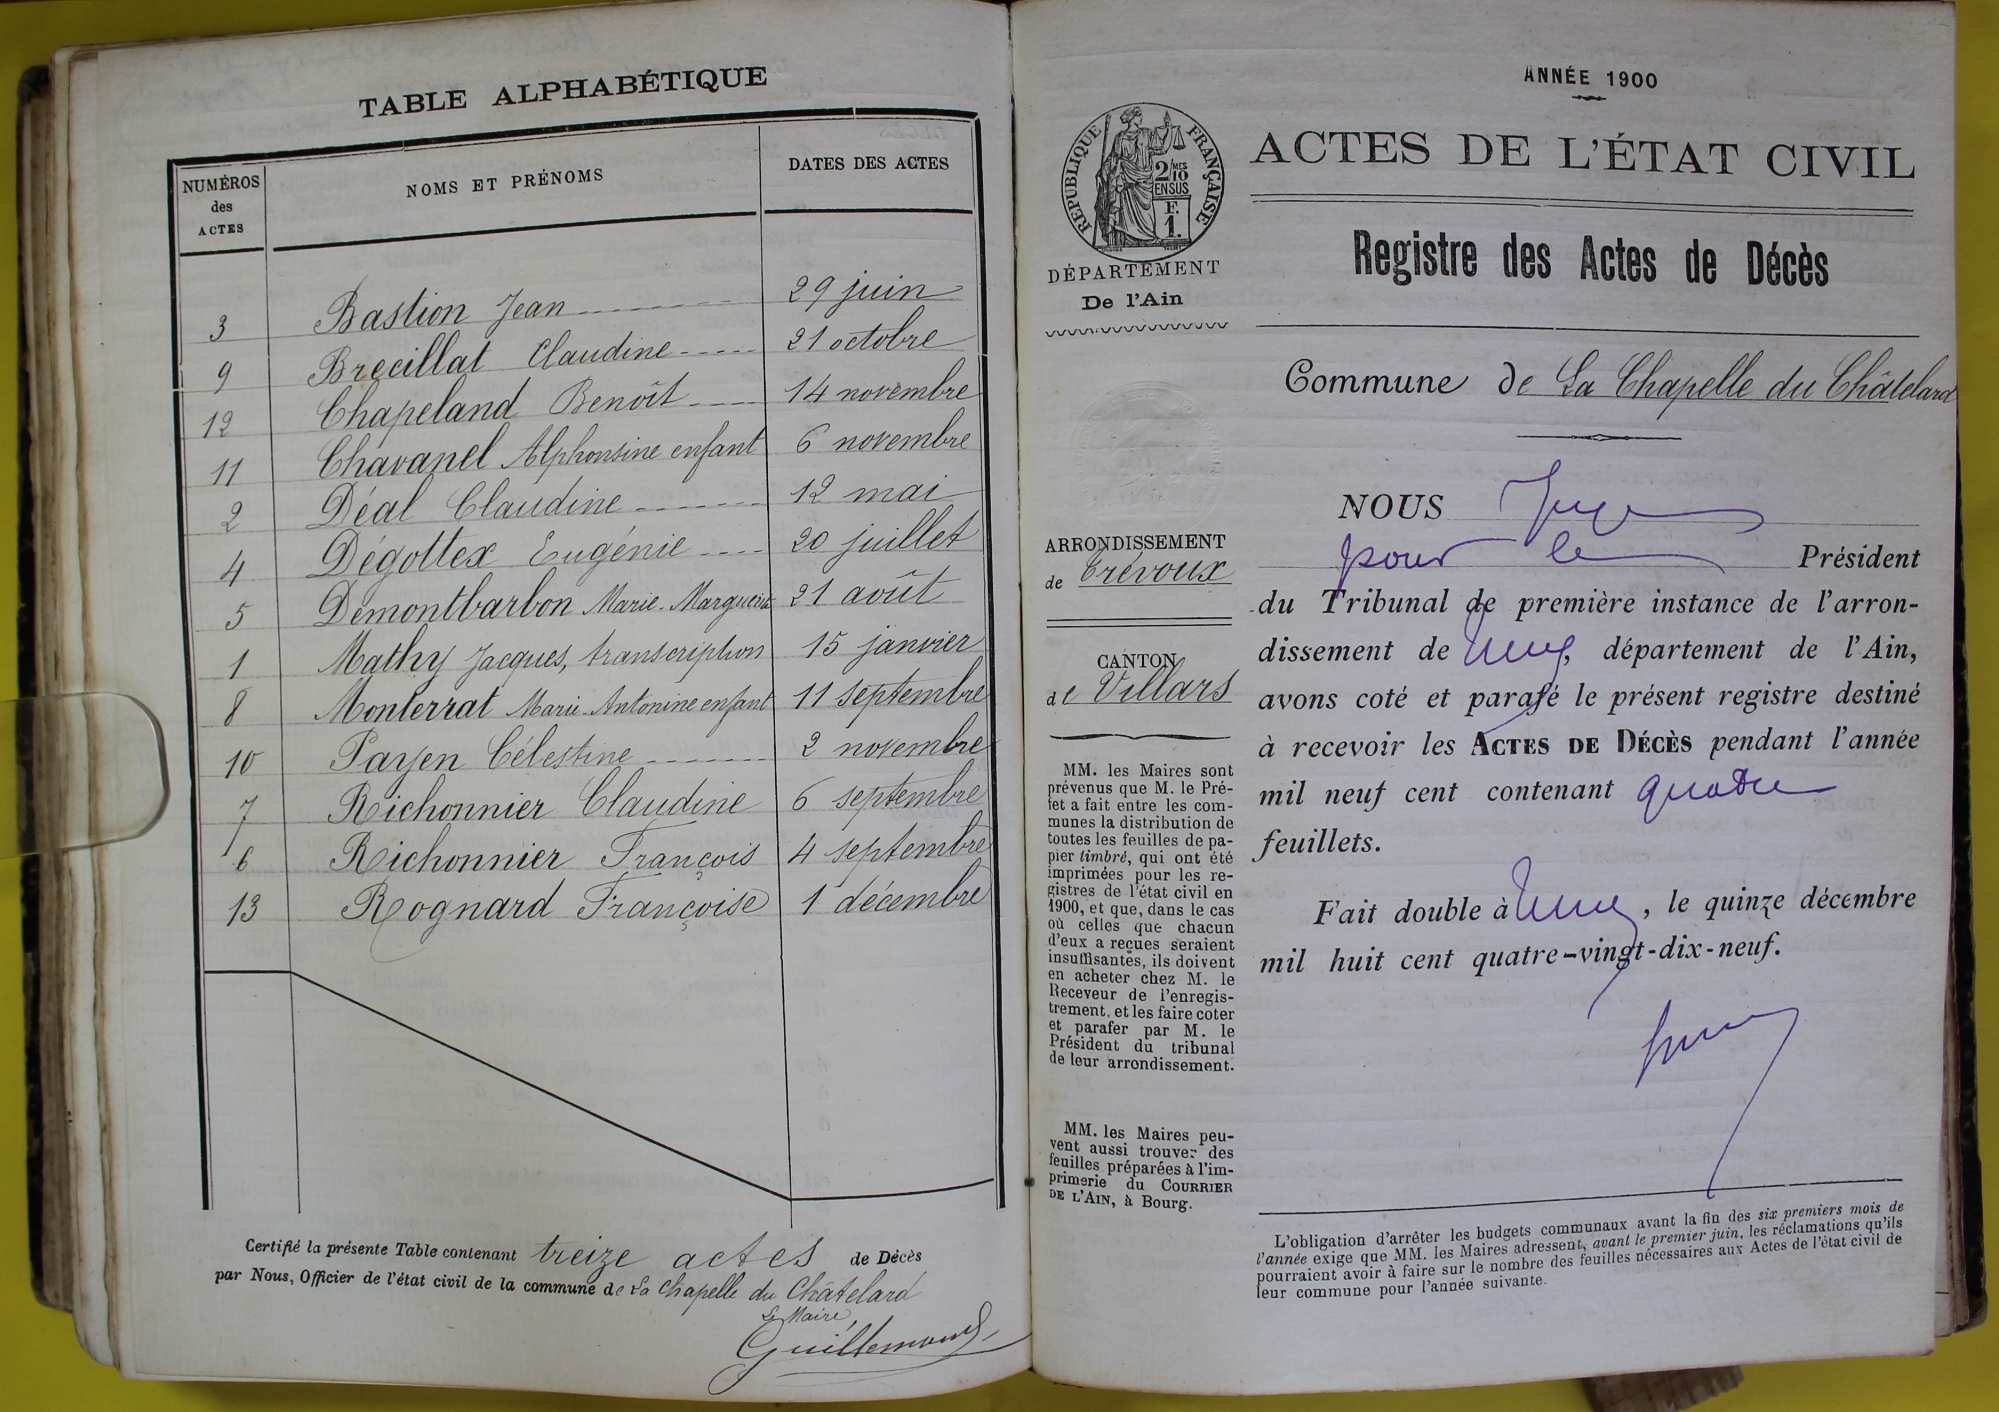 TABLE ALPHABÉTIQUE
NUMÉROS des ACTES NOMS ET PRÉNOMS DATES DES ACTES
3 Bastion Jean 29 juin
9 Brecillat Claudine 21 octobre
12 Chapeland Benoît 14 novembre
11 Chavanel Alphonsine enfant 6 novembre
2 Déal Claudine 12 mai
4 Dégottex Eugénie 20 juillet
5 Démontbarbon Marie-Marguerite 21 août
1 Mathy Jacques, transcription 15 janvier
8 Monterrat Marie-Antonine enfant 11 septembre
10 Payen Célestine 2 novembre
7 Richonnier Claudine 6 septembre
6 Richonnier François 4 septembre
13 Rognard Françoise 1 décembre
Certifié la présente Table contenant treize actes de Décès
par Nous, Officier de l'état civil de la commune de La Chapelle du Châtelard
Le Maire,
Guillemaud
ANNÉE 1900
RÉPUBLIQUE FRANÇAISE
2/10 MES
EN SUS
F.
1.
DÉPARTEMENT
De l'Ain
ACTES DE L'ÉTAT CIVIL
Registre des Actes de Décès
Commune de La Chapelle du Châtelard
ARRONDISSEMENT
de Trévoux
CANTON
de Villars
MM. les Maires sont
prévenus que M. le Pré-
fet a fait entre les com-
munes la distribution de
toutes les feuilles de pa-
pier timbré, qui ont été
imprimées pour les re-
gistres de l'état civil en
1900, et que, dans le cas
où celles que chacun
d'eux a reçues seraient
insuffisantes, ils doivent
en acheter chez M. le
Receveur de l'enregis-
trement, et les faire coter
et parafer par M. le
Président du tribunal
de leur arrondissement.
MM. les Maires peu-
vent aussi trouver des
feuilles préparées à l'im-
primerie du COURRIER
DE L'AIN, à Bourg.
NOUS Juge
pour le Président
du Tribunal de première instance de l'arron-
dissement de , département de l'Ain,
avons coté et parafé le présent registre destiné
à recevoir les ACTES DE DÉCÈS pendant l'année
mil neuf cent contenant quatre
feuillets.
Fait double à , le quinze décembre
mil huit cent quatre-vingt-dix-neuf.
L'obligation d'arrêter les budgets communaux avant la fin des six premiers mois de
l'année exige que MM. les Maires adressent, avant le premier juin, les réclamations qu'ils
pourraient avoir à faire sur le nombre des feuilles nécessaires aux Actes de l'état civil de
leur commune pour l'année suivante.